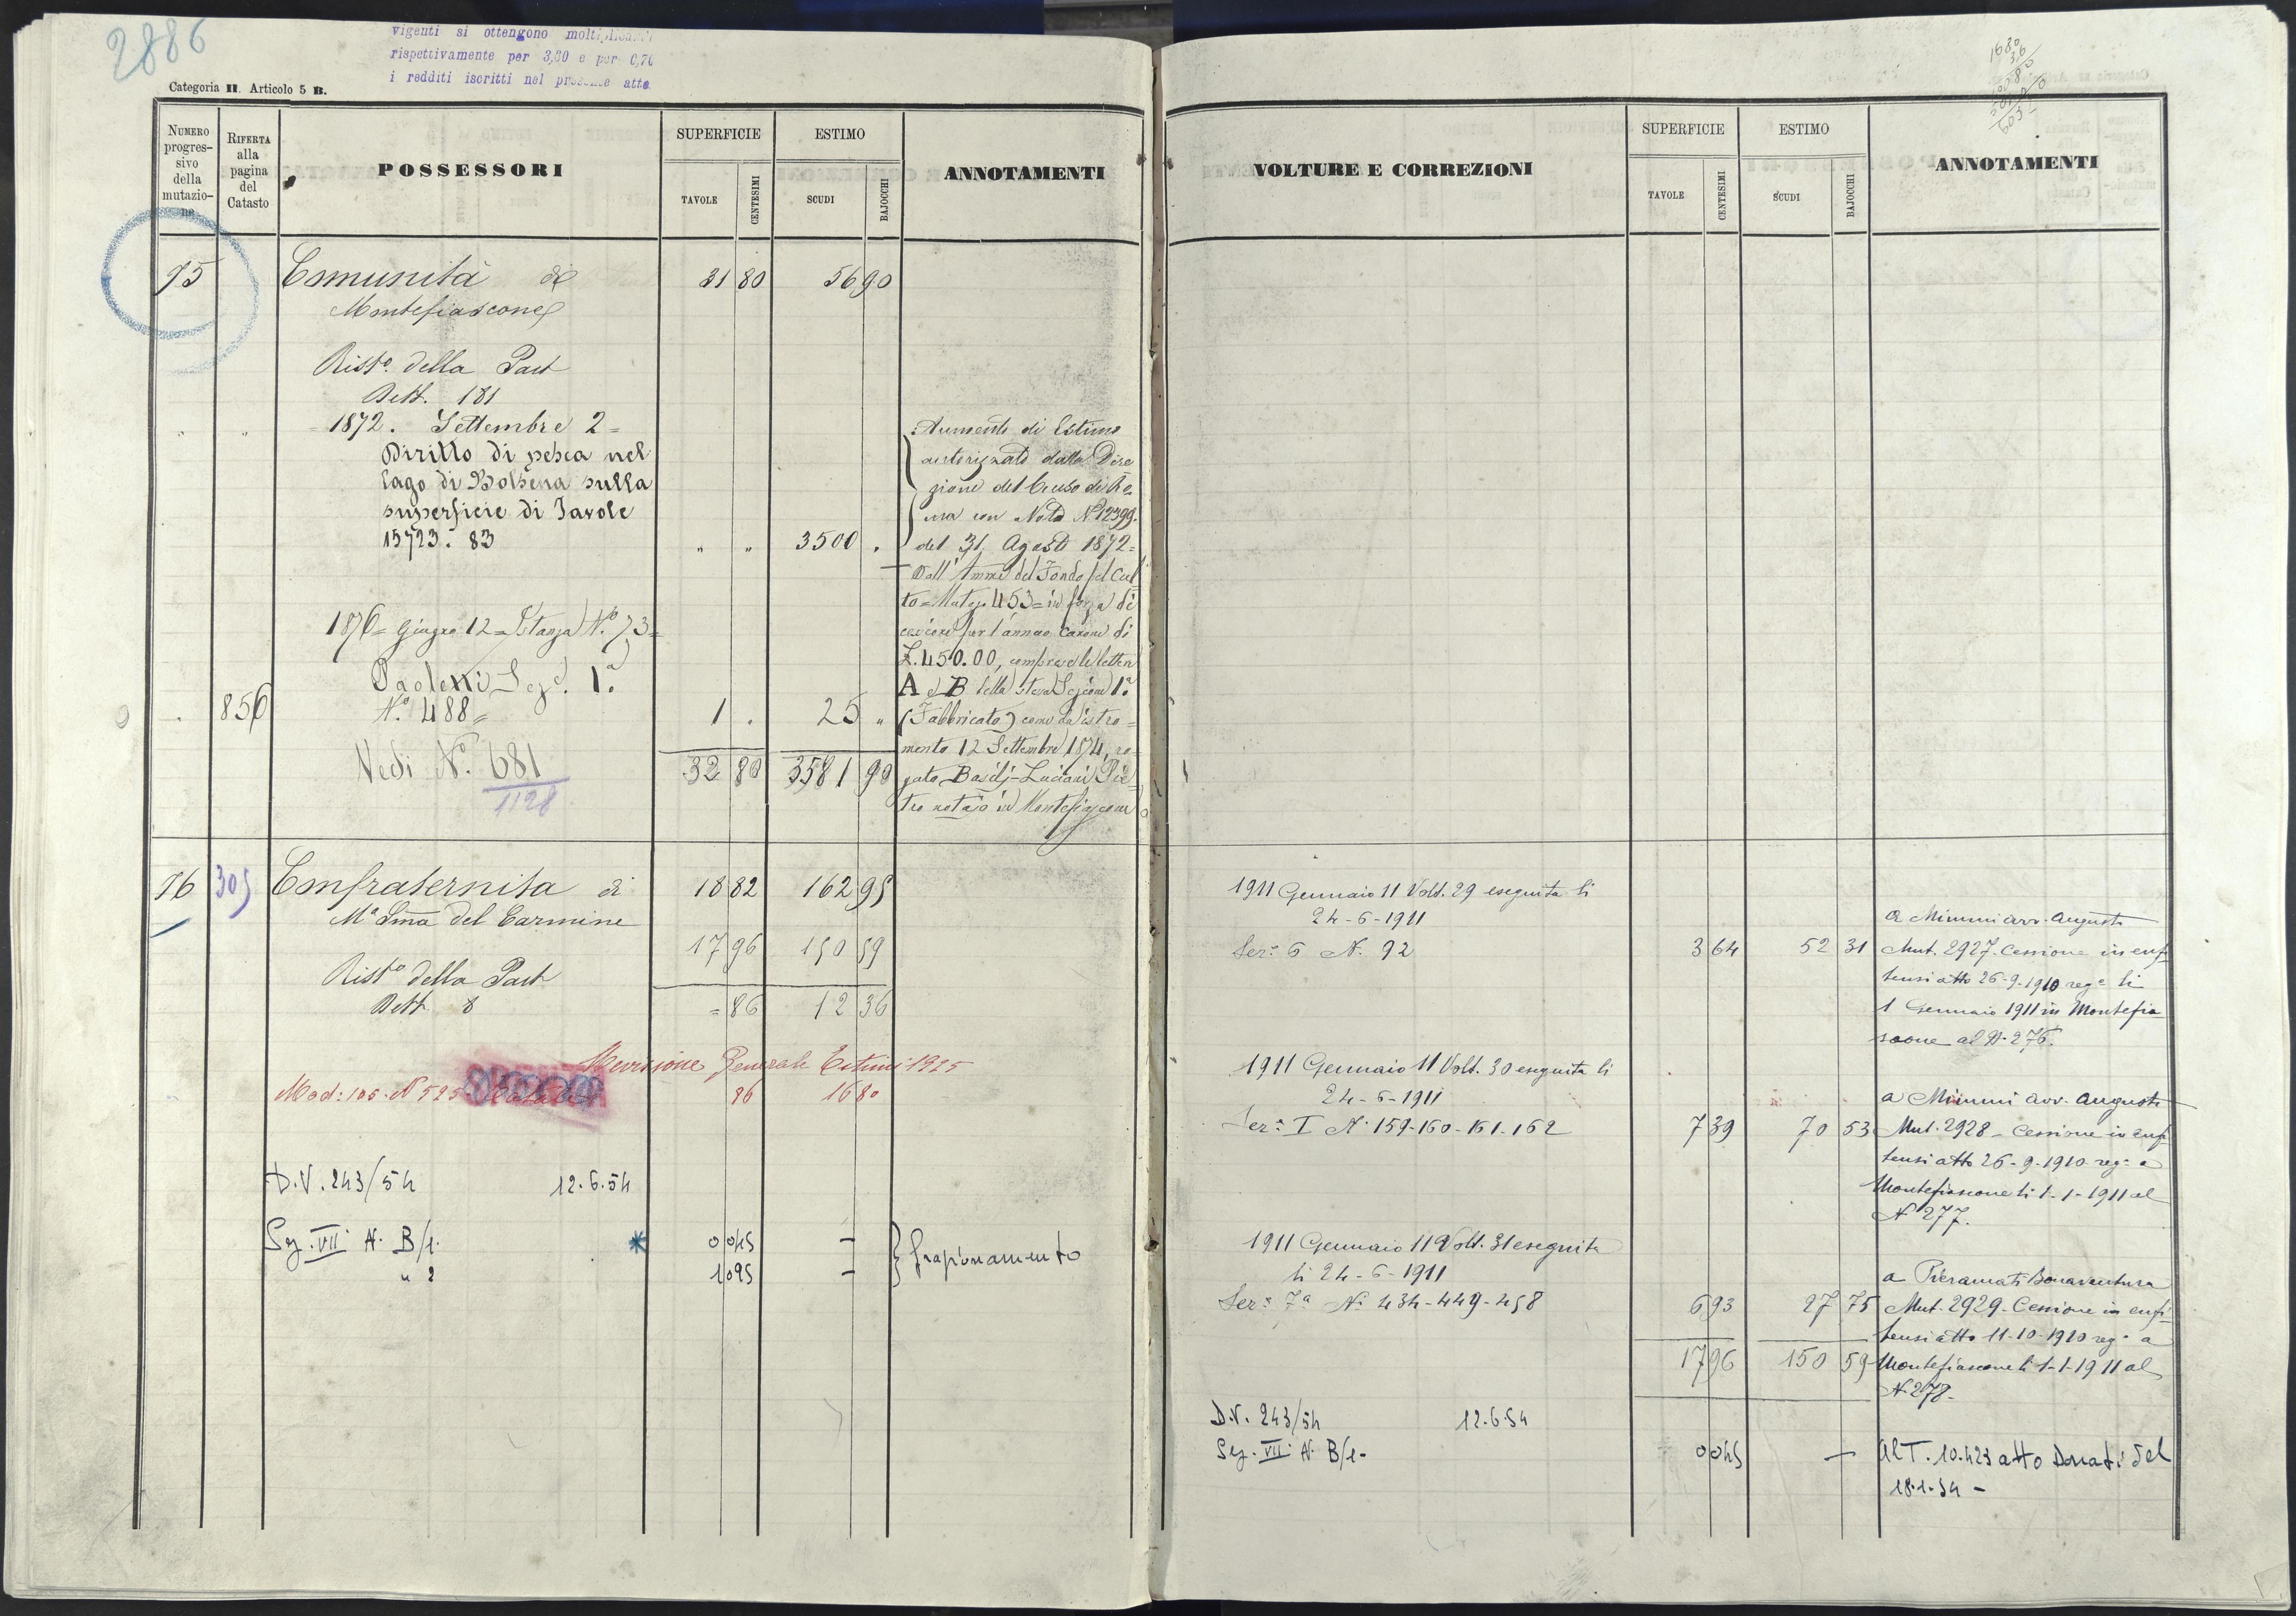 2886
vigenti si ottengono
rispettivamente per 3,60 e per 0,70
i redditi iscritti nel presente atto
Categoria II. Articolo 5 B.
NUMERO progressivo della mutazione
RIFERTA alla pagina del Catasto
POSSESSORI
SUPERFICIE
TAVOLE
CENTESIMI
ESTIMO
SCUDI
BAJOCCHI
ANNOTAMENTI
75 Comunità di 31 80 56 90
Montefiascone
Rist.o della Part
Rett. 181
" " = 1872. Settembre 2 =
Diritto di pesca nel
lago di Bolsena sulla
superficie di Tavole
15723. 83 " " 3500 .
Aumento di Estimo
autorizzato dalla Dire
zione del Censo di Ro
ma con Nota N° 12399.
del 31. Agosto 1872=
Dall'Amme del Fondo pel Cul
to = Mutaz. 453 = in forza di
cessione per l'annuo canone di
L. 450.00, compra le lettere
A e B della stessa Sezione 1.a
(Fabbricato) come da istro=
mento 12 Settembre 1874, ro
gato Basilj-Luciani Pie
tro notajo in Montefiascone
1876 = Giugno 12 = Istanza N.° 73 =
Paoletti Sez.e 1.a
. 856 N.° 488 = 1 . 25 "
Vedi N.° 681 32 80 3581 90
1128
76 305 Confraternita di 18 82 162 95
M.a SSma del Carmine
17 96 150 59
Rist.o della Part
Rett. 8 = 86 12 36
Revisione Generale Estimi 1925
Mod: 105. N 525 86 16 80
D.V. 243/54 12.6.54
Sez. VII N. B/1. * 0 045 –
" 2 1 095 –
} frazionamento
1680
36
VOLTURE E CORREZIONI
SUPERFICIE
TAVOLE
CENTESIMI
ESTIMO
SCUDI
BAJOCCHI
ANNOTAMENTI
1911 Gennaio 11 Volt. 29 eseguita li
24-6-1911
Sez.e 6 N. 92 3 64 52 31
a Mimmi avv. Augusto
Mut. 2927. Cessione in enfi
teusi atto 26-9-1910 reg.o li
1 Gennaio 1911 in Montefia
scone al N. 276.
1911 Gennaio 11 Volt. 30 eseguita li
24-6-1911
Sez.e I N. 159-160-161-162 7 39 70 53
a Mimmi avv. Augusto
Mut. 2928 - Cessione in enfi
teusi atto 26-9-1910 reg.o a
Montefiascone li 1-1-1911 al
N. 277.
1911 Gennaio 11 Volt. 31 eseguita
li 24-6-1911
Sez.e 7a N. 434-449-458 6 93 27 75
a Pieramati Bonaventura
Mut. 2929 - Cessione in enfi
teusi atto 11-10-1910 reg.o a
Montefiascone li 1-1-1911 al
N. 278-
17 96 150 59
D.V. 243/54 12.6.54
Sez. VII N. B/1- 0 045 –
Al T. 10.423 atto Donati del
18.1.54 –